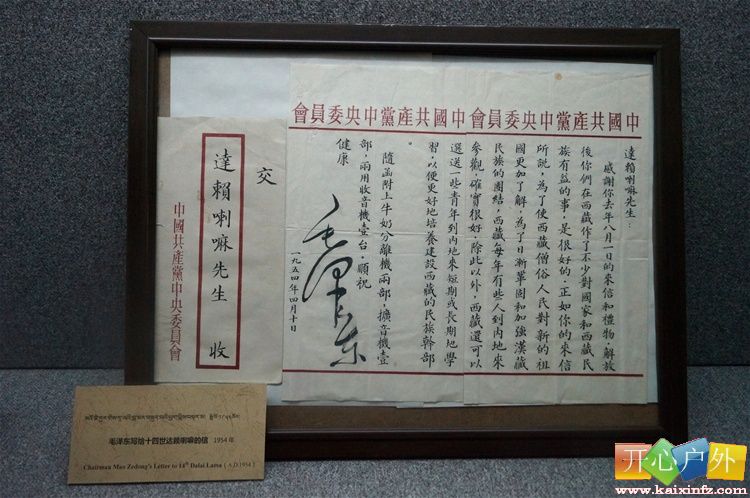 中國共產黨中央委員會
中國共產黨中央委員會
達賴喇嘛先生：
感謝你去年八月一日的來信和禮物。解放
後你們在西藏作了不少對國家和西藏民
族有益的事，是很好的。正如你的來信
所說，為了使西藏僧俗人民對新的祖
國更加了解，為了日漸鞏固和加強漢藏
民族的團結，西藏每年有些人到內地來
參觀，確實很好。除此以外，西藏還可以
選送一些青年到內地來短期或長期地學
習，以便更好地培養建設西藏的民族幹部
隨函附上牛奶分離機兩部，擴音機壹
部，兩用收音機壹台。順祝
健康
毛澤東
一九五四年四月十日
交
達賴喇嘛先生 收
中國共產黨中央委員會
毛泽东写给十四世达赖喇嘛的信 1954年
Chairman Mao Zedong's Letter to 14th Dalai Lama ( A.D.1954 )
开心户外
www.kaixinfz.com